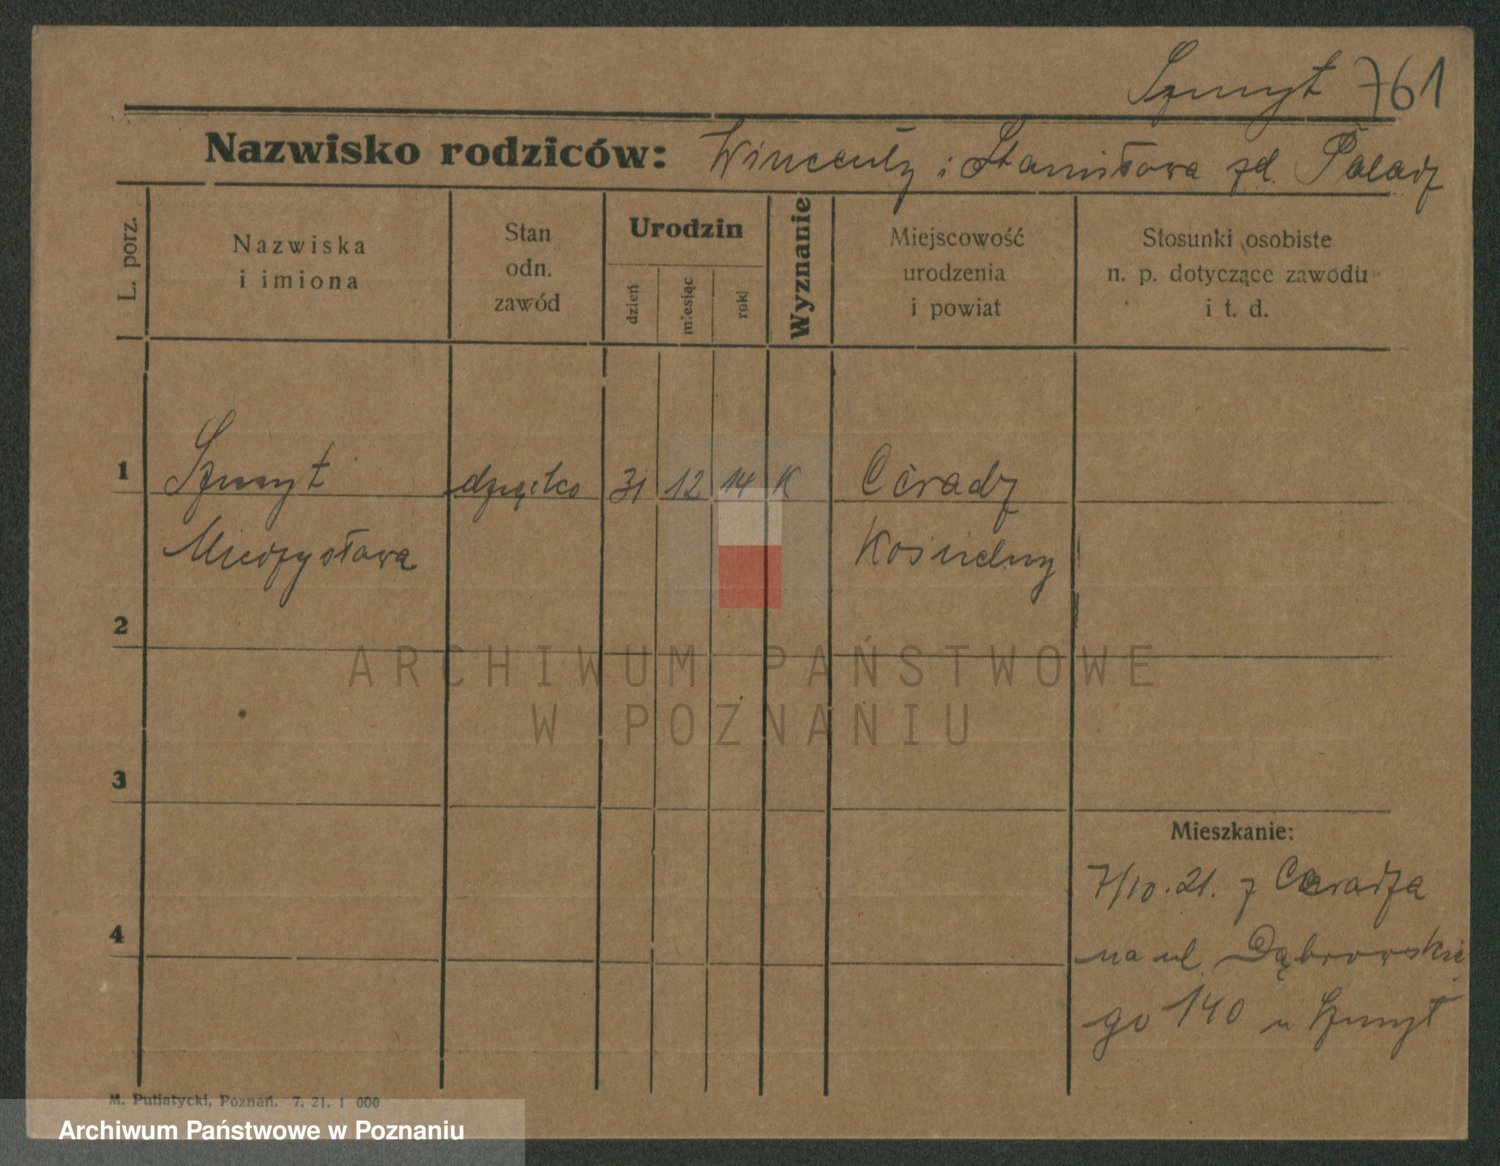 Szmyt 761
Nazwisko rodziców: Wincenty i Stanisława zd. Palacz
L. porz.
Nazwiska
i imiona
Stan
odn.
zawód
Urodzin
dzień
miesiąc
rok
Wyznanie
Miejscowość
urodzenia
i powiat
Stosunki osobiste
n. p. dotyczące zawodu
i t. d.
1 Szmyt dziecko 31 12 14 K Ceradz
Mieczysława Kościelny
2
3
4
Mieszkanie:
7/10.21. z Ceradza
na ul. Dąbrowskie
go 140 u Szmyt
M. Putiatycki, Poznań. 7. 21. 1 000
ARCHIWUM PAŃSTWOWE
W POZNANIU
Archiwum Państwowe w Poznaniu